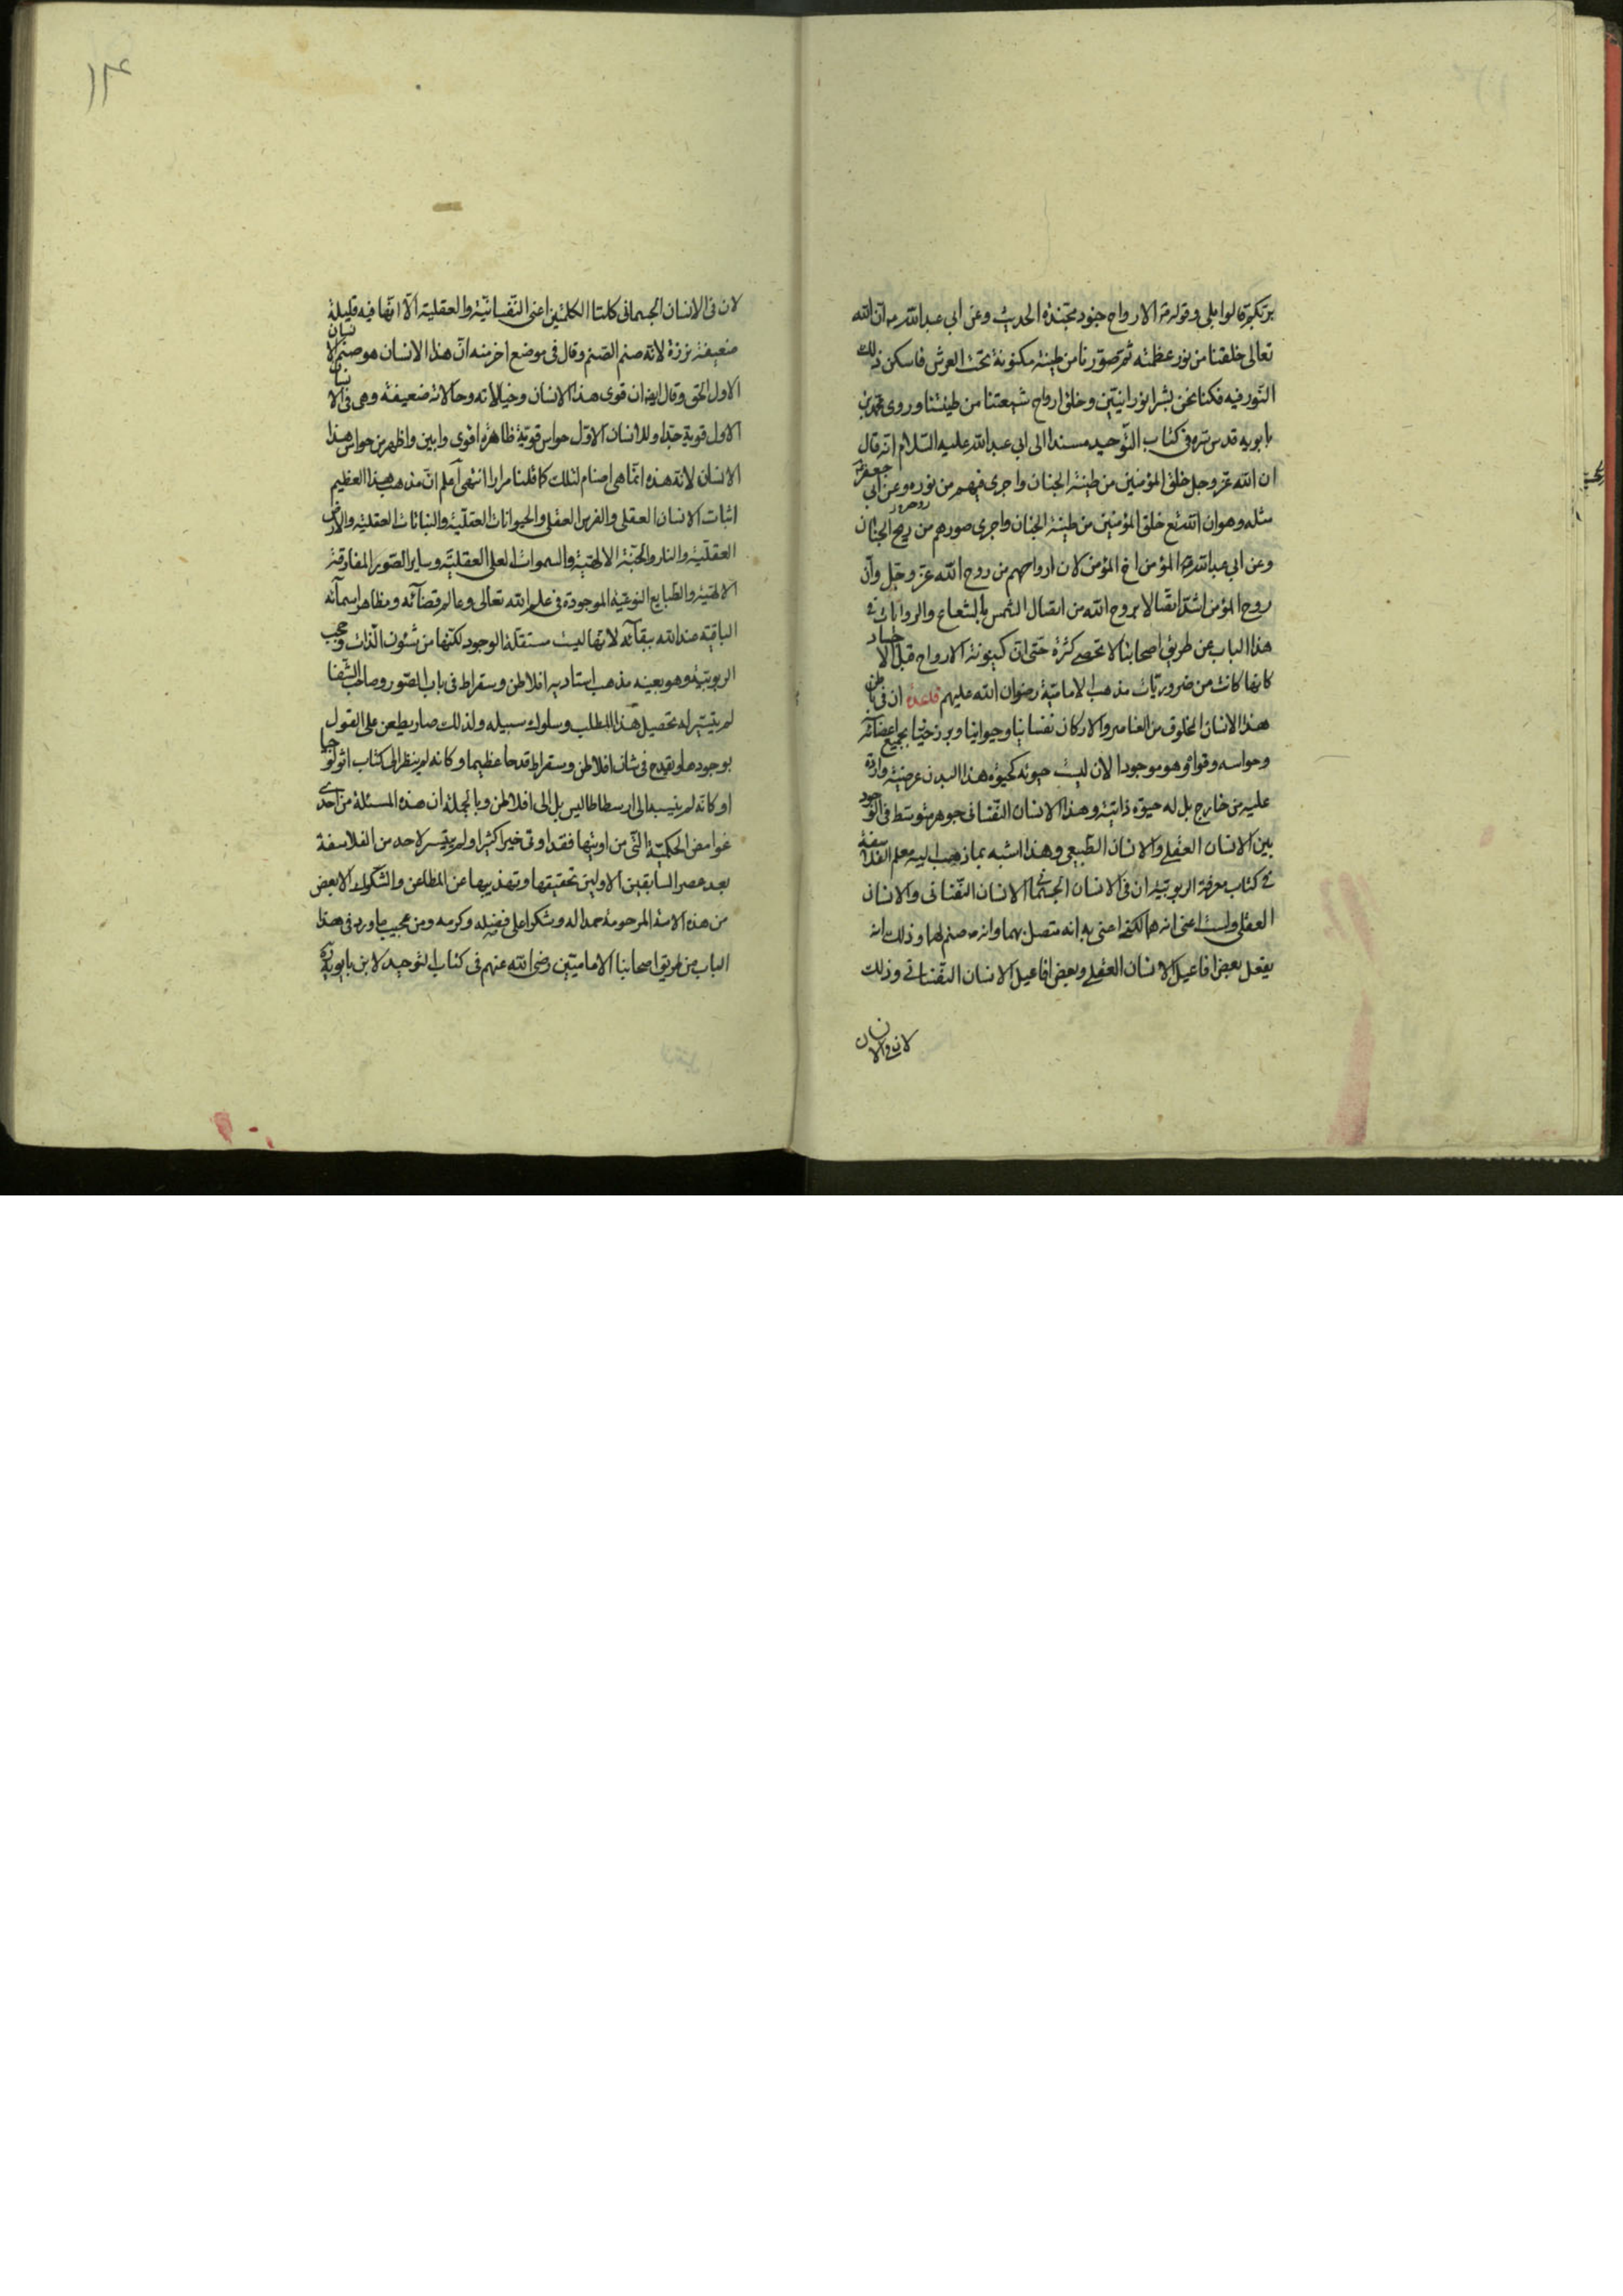 بربكم قالوا بلى وقوله ص الارواح جنود مجندة الحديث وعن ابى عبدالله ع ان الله
تعالى خلقنا من نور عظمته ثم صورنا من طينة مكنونة تحت العرش فاسكن ذلك
النور فيه فكنا نحن بشرا نورانيين وخلق ارواح شيعتنا من طينتنا وروى محمد بن
بابويه قدس سره فى كتاب التوحيد مسندا الى ابى عبدالله عليه السلام انه قال
ان الله عز وجل خلق المؤمنين من طينة الجنان واجرى فيهم من نوره وعن ابى جعفر ع
مثله وهو ان الله تع خلق المؤمنين من طينة الجنان واجرى صورهم من ريح الجنان
وعن ابى عبدالله ع المؤمن اخ المؤمن لان ارواحهم من روح الله عز وجل وان
روح المؤمن اشد اتصالا بروح الله من اتصال الشمس بالشعاع والروايات فى
هذا الباب من طريق اصحابنا لا تحصى كثرة حتى ان كينونة الارواح قبل الاجساد
كانها كانت من ضروريات مذهب الامامية رضوان الله عليهم قاعدة ان فى باطن
هذا الانسان المخلوق من العناصر والاركان نفسانيا وحيوانيا برزخيا بجميع اعضائه
وحواسه وقواه وهو موجود الان ليست حيوته كحيوة هذا البدن عرضية واردة
عليه من خارج بل له حيوة ذاتية وهذا الانسان النفسانى جوهر متوسط فى الوجود
بين الانسان العقلى والانسان الطبيعى وهذا اشبه بما ذهب اليه معلم الفلاسفة
فى كتاب معرفة الربوبية ان فى الانسان الجسمانى الانسان النفسانى والانسان
العقلى ولست اعنى انه هما لكنى اعنى به انه متصل بهما وانه صنم لهما وذلك انه
يفعل بعض افاعيل الانسان العقلى وبعض افاعيل الانسان النفسانى وذلك
لان فى الانسان
١٣
لان فى الانسان الجسمانى كلتا الكلمتين اعنى النفسانية والعقلية الا انها فيه قليلة
ضعيفة نزرة لانه صنم الصنم وقال فى موضع اخر منه ان هذا الانسان هو صنم الانسان
الاول الحق وقال ايضا ان قوى هذا الانسان وخيالاته وحالاته ضعيفة وهى فى الانسان
الاول قوية جدا وللانسان الاول حواس قوية ظاهرة اقوى وابين واظهر من حواس هذا
الانسان لان هذه انما هى اصنام لتلك كما قلنا مرارا انتهى اعلم ان مذهب هذا العظيم
اثبات الانسان العقلى والفرس العقلى والحيوانات العقلية والنباتات العقلية والارض
العقلية والنار والجنة الالهية والسموات العلى العقلية وساير الصور المفارقة
الالهية والطبايع النوعية الموجودة فى علم الله تعالى وعالم قضائه ومظاهر اسمائه
الباقية عند الله ببقائه لانها ليست مستقلة الوجود لكنها من شئون الذات وحجب
الربوبية وهو بعينه مذهب استاديه افلاطن وسقراط فى باب الصور وصاحب الشفا
لم يتيسر له تحصيل هذا المطلب وسلوك سبيله ولذلك صار يطعن على القول
بوجودها ويقدح فى شان افلاطن وسقراط قدحا عظيما وكانه لم ينظر الى كتاب اثولوجيا
او كانه لم ينسبه الى ارسطاطاليس بل الى افلاطن وبالجملة ان هذه المسئلة من احدى
غوامض الحكمية التى من اوتيها فقد اوتى خيرا كثيرا ولم يتيسر لاحد من الفلاسفة
بعد عصر السابقين الاولين تحقيقها وتهذيبها عن المطاعن والشكوك الا لبعض
من هذه الامة المرحومة حمدا له وشكرا على فضله وكرمه ومن عجيب ما ورد فى هذا
الباب من طريق اصحابنا الاماميين رضى الله عنهم فى كتاب التوحيد لابن بابويه